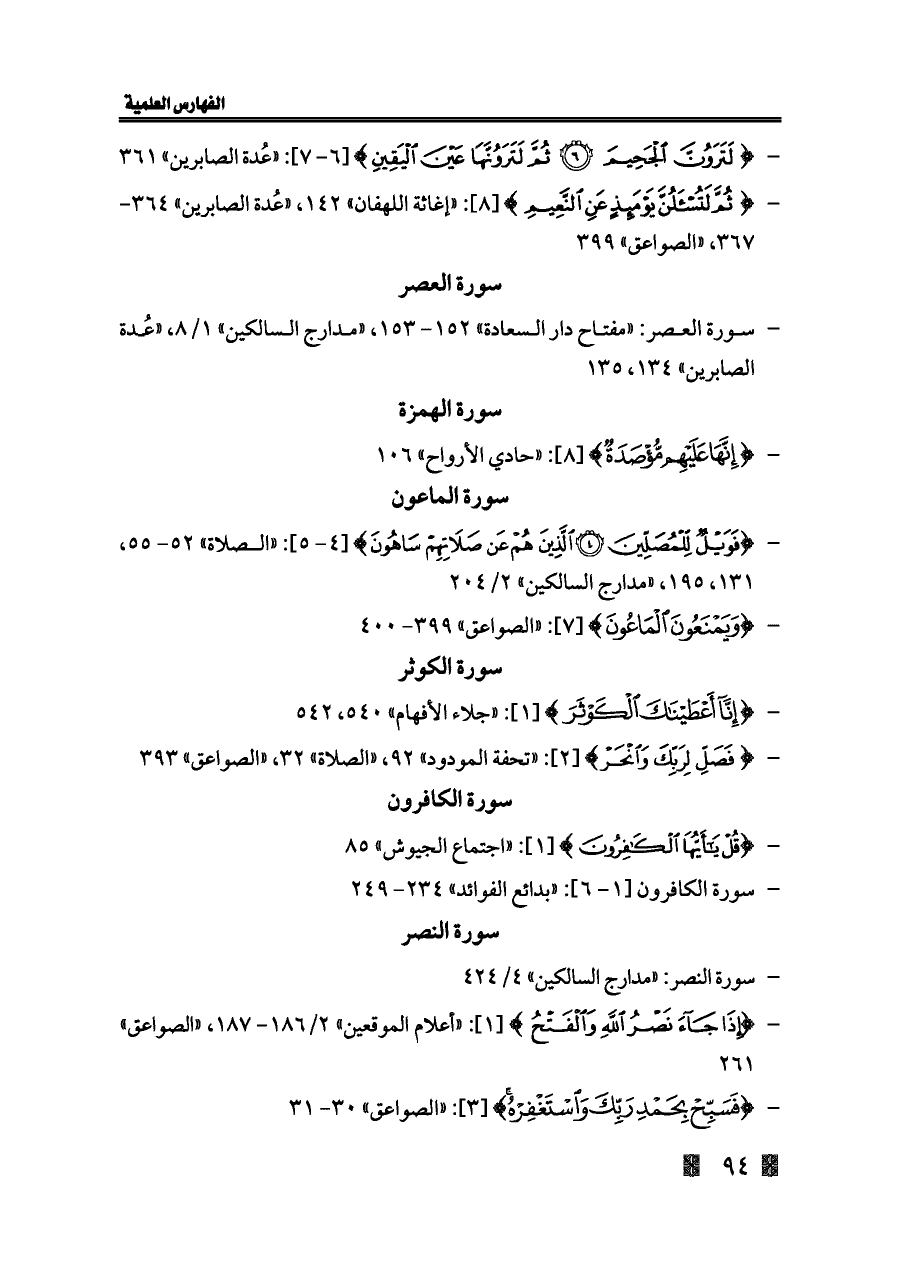 الفهارس العلمية
– ﴿ لَتَرَوُنَّ ٱلْجَحِيمَ ۝٦ ثُمَّ لَتَرَوُنَّهَا عَيْنَ ٱلْيَقِينِ ﴾ [٦– ٧]: «عُدة الصابرين» ٣٦١
– ﴿ ثُمَّ لَتُسْـَٔلُنَّ يَوْمَئِذٍ عَنِ ٱلنَّعِيمِ ﴾ [٨]: «إغاثة اللهفان» ١٤٢، «عُدة الصابرين» ٣٦٤–
٣٦٧، «الصواعق» ٣٩٩
سورة العصر
– سورة العصر: «مفتاح دار السعادة» ١٥٢– ١٥٣، «مدارج السالكين» ١/ ٨، «عُدة
الصابرين» ١٣٤، ١٣٥
سورة الهمزة
– ﴿ إِنَّهَا عَلَيْهِم مُّؤْصَدَةٌ ﴾ [٨]: «حادي الأرواح» ١٠٦
سورة الماعون
– ﴿فَوَيْلٌ لِّلْمُصَلِّينَ ۝٤ ٱلَّذِينَ هُمْ عَن صَلَاتِهِمْ سَاهُونَ ﴾ [٤– ٥]: «الصلاة» ٥٢– ٥٥،
١٣١، ١٩٥، «مدارج السالكين» ٢/ ٢٠٤
– ﴿وَيَمْنَعُونَ ٱلْمَاعُونَ ﴾ [٧]: «الصواعق» ٣٩٩– ٤٠٠
سورة الكوثر
– ﴿إِنَّآ أَعْطَيْنَاكَ ٱلْكَوْثَرَ ﴾ [١]: «جلاء الأفهام» ٥٤٠، ٥٤٢
– ﴿ فَصَلِّ لِرَبِّكَ وَٱنْحَرْ ﴾ [٢]: «تحفة المودود» ٩٢، «الصلاة» ٣٢، «الصواعق» ٣٩٣
سورة الكافرون
– ﴿قُلْ يَٰٓأَيُّهَا ٱلْكَٰفِرُونَ ﴾ [١]: «اجتماع الجيوش» ٨٥
– سورة الكافرون [١– ٦]: «بدائع الفوائد» ٢٣٤– ٢٤٩
سورة النصر
– سورة النصر: «مدارج السالكين» ٤/ ٤٢٤
– ﴿إِذَا جَآءَ نَصْرُ ٱللَّهِ وَٱلْفَتْحُ ﴾ [١]: «أعلام الموقعين» ٢/ ١٨٦– ١٨٧، «الصواعق»
٢٦١
– ﴿فَسَبِّحْ بِحَمْدِ رَبِّكَ وَٱسْتَغْفِرْهُۚ﴾ [٣]: «الصواعق» ٣٠– ٣١
٩٤